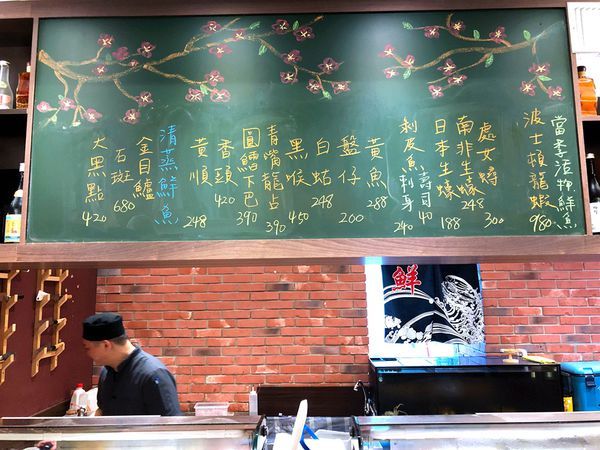 當季活抑鮮魚
波士頓龍蝦 980
處女蟳 300
南非生蠔 248
日本生蠔 188
剝皮魚壽司 40
刺身 240
黃魚 288
盤仔 200
白鲳 248
黑喉 450
青嘴龍占 390
圓鱈下巴 390
香頭 420
黃順 248
清蒸鮮魚
金目鱸
石斑 680
大黑點 420
鮮